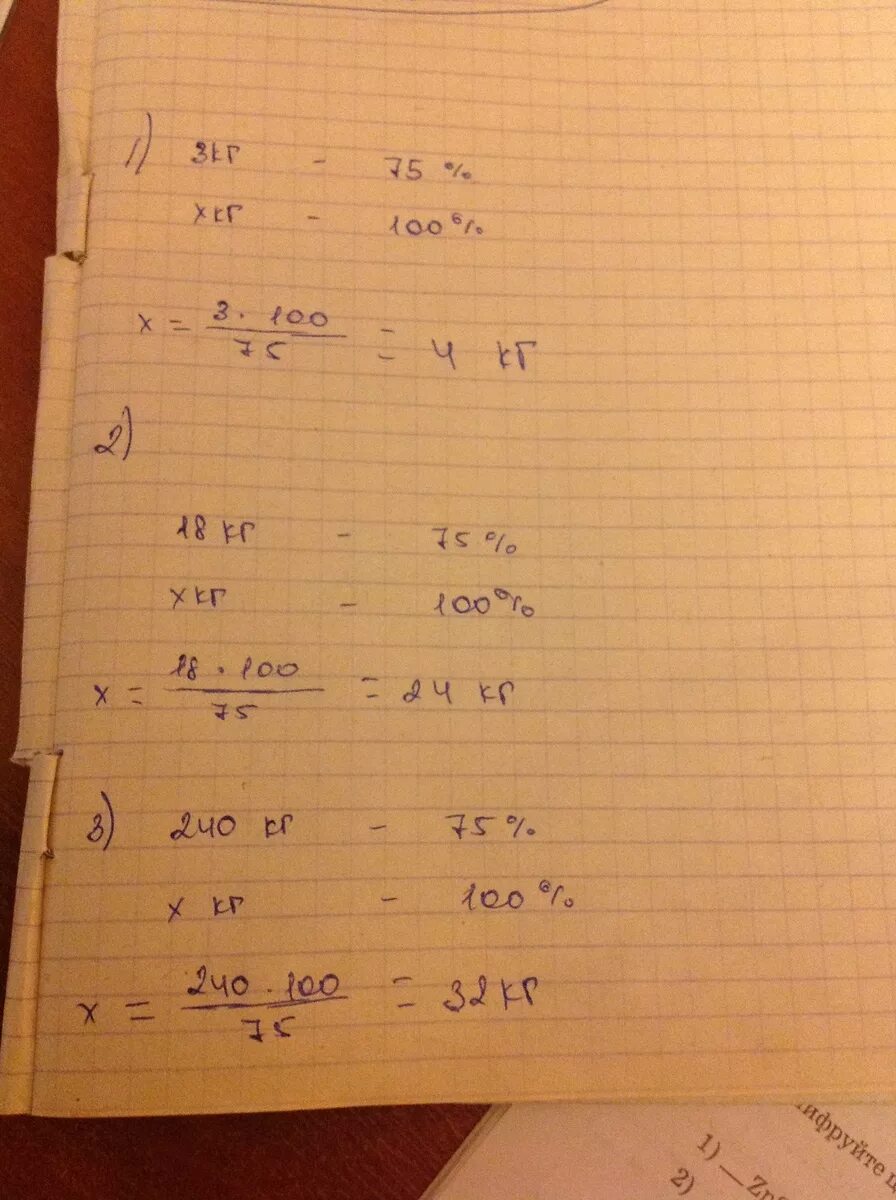 1) 3кг - 75%
xкг - 100%
x = 3 · 100 / 75 = 4 кг
2)
18 кг - 75%
xкг - 100%
x = 18 · 100 / 75 = 24 кг
3) 240 кг - 75%
x кг - 100%
x = 240 · 100 / 75 = 32кг
ифруйте
1) — Zn
2)